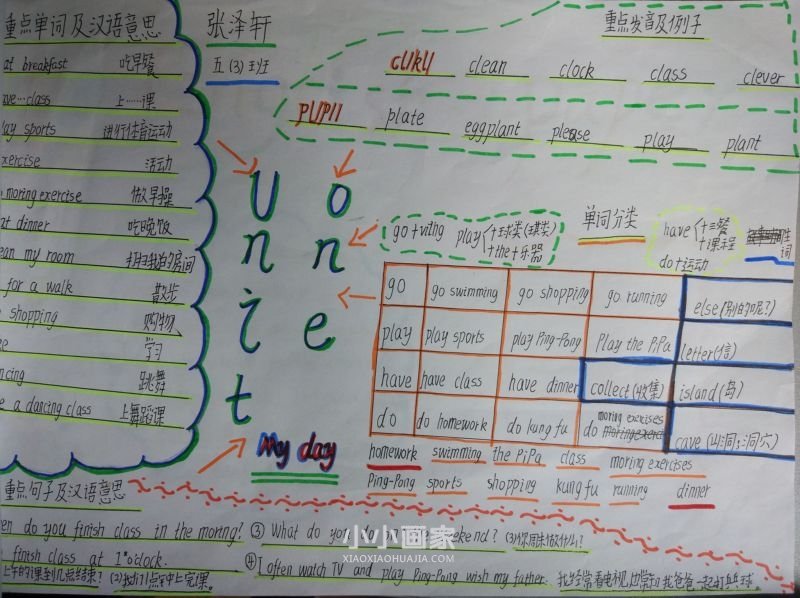 重点单词及汉语意思
at breakfast 吃早餐
ave…class 上……课
lay sports 进行体育运动
xercise 活动
moring exercise 做早操
at dinner 吃晚饭
ean my room 打扫我的房间
for a walk 散步
shopping 购物
学习
ncing 跳舞
e a dancing class 上舞蹈课
张泽轩
五(3)班
重点发音及例子
clean clock class clever
plate eggplant please play plant
Unit
one
My day
go+ving play 十球类(棋类) 十the十乐器
单词分类
have 十三餐 十课程
do十运动
词
go go swimming go shopping go running else(别的呢?)
play play sports play Ping-Pong Play the PiPa letter(信)
have have class have dinner collect(收集) island(岛)
do do homework do kung fu do moring exercises cave(山洞;洞穴)
homework swimming the PiPa class moring exercises
Ping-Pong sports shopping kung fu running dinner
重点句子及汉语意思
en do you finish class in the moring?
finish class at 1 o'clock.
上午的课到几点结束? (2)我们1点中上完课。
③ What do you do ekend? (3)你周末做什么?
④ I often watch TV and play Ping-Pong wish my father. 我经常看电视,也常和我爸爸一起打乒乓球
小小画家
XIAOXIAOHUAJIA.COM